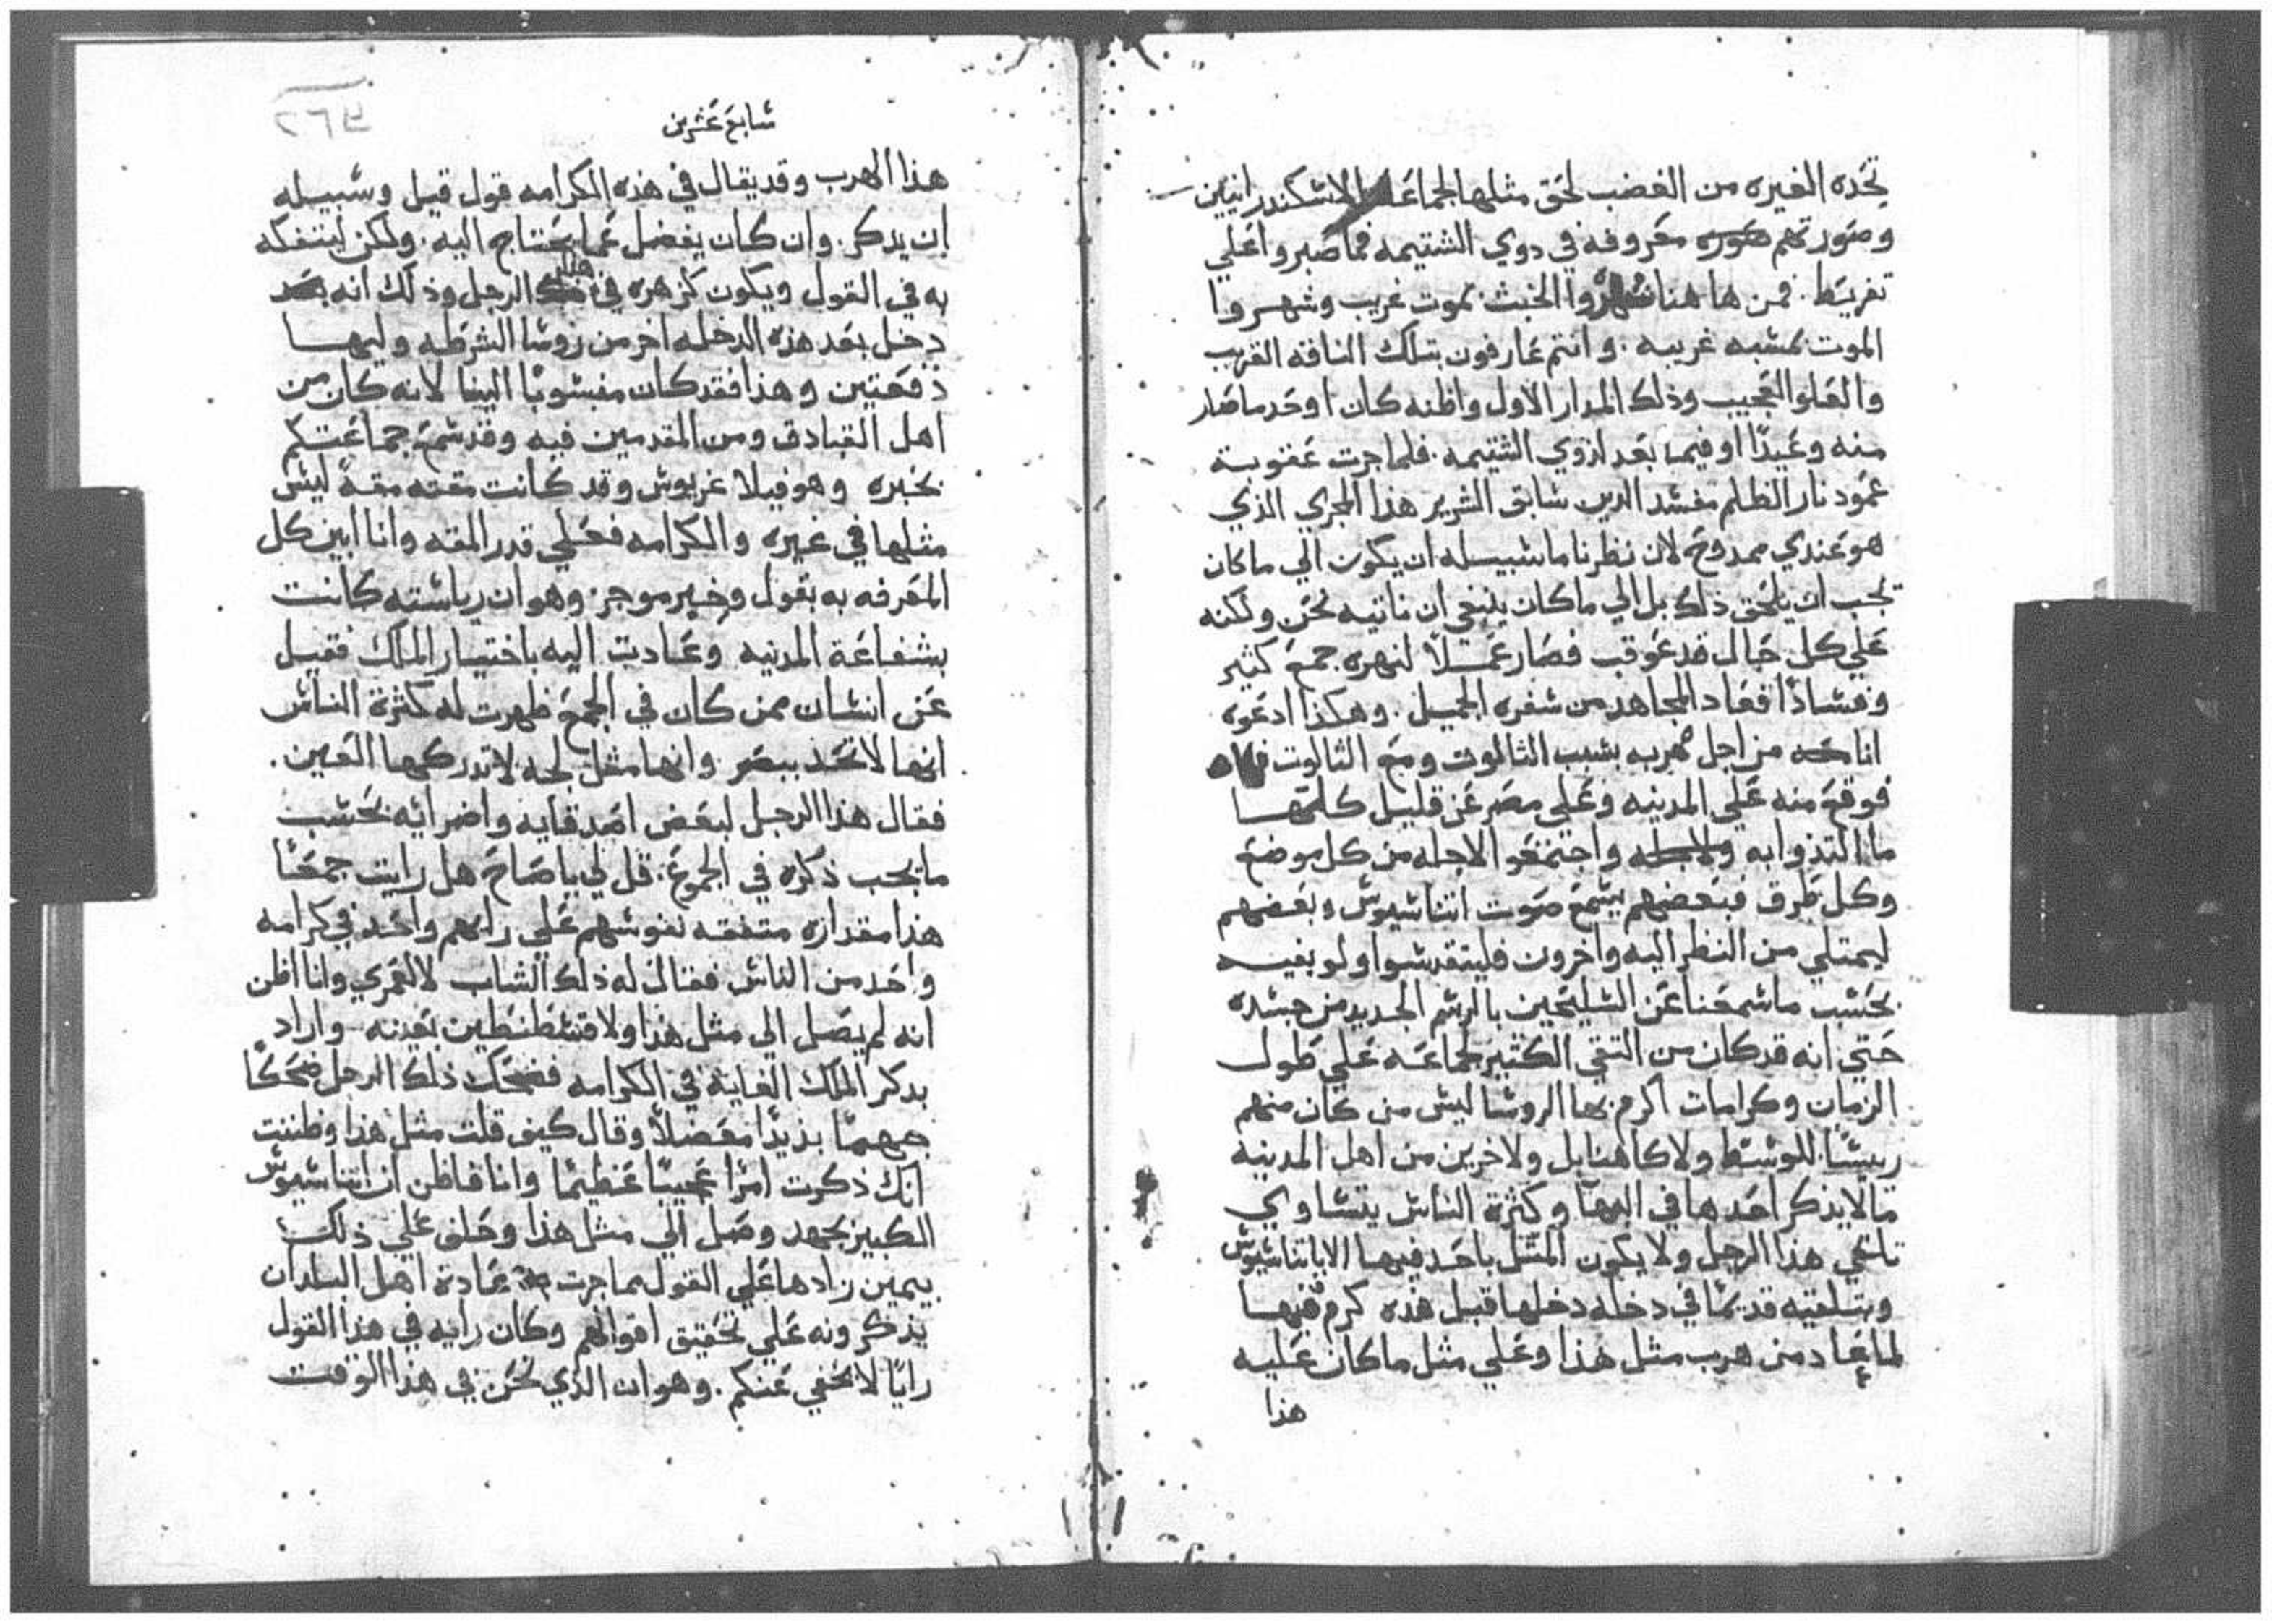 تحده الغيره من الغضب لحق مثلها الجماعه الاسكندرانيين
وصورتهم معروفه في دوي الشتيمه فما صبروا علي
تفريط. فمن هاهنا شهروا الخبث بموت غريب وشهروا
الموت بمشبه غريبه. وانتم عارفون بتلك الناقه الغريب
والعلو العجيب وذلك المدار الاول واظنه كان اوحد ما صار
منه وعيدًا او فيما بعد لذوي الشتيمه. فلما جرت عقوبة
عمود نار الظلم مفسد الدين سابق الشرير هذا المجري الذي
هو عندي ممدوح لان نظرنا ما سبيله ان يكون الي ما كان
يجب ان يلحق ذلك بل الي ما كان ينبغي ان ناتيه نحن ولكنه
علي كل حال قد عوقب فصار عملاً لنهره جمع كثير
وفسادًا فعاد المجاهد من سفره الجميل. وهكذا ادعوه
انا من اجل هربه بسبب الثالوث ومع الثالوث
فوقع منه علي المدينه وعلي مصر عن قليل كلتها
ما التذوا به واجتمعوا الاجله من كل موضع
وكل طرف فبعضهم يسمع صوت اتناسيوس وبعضهم
ليمتلي من النظر اليه واخرون فليتقدسوا ولو بفيه
بحسب ما سمعنا عن السليحين بالرسم الجديد من جسده
حتي انه قد كان من التقي الكثير لجماعه علي طول
الزمان وكرامات اكرم بها الروسا ليس من كان منهم
رييسًا للوسط ولا كاهنا بل ولاخرين من اهل المدينه
ما لا يذكر احدها في البها وكثرة الناس يتساوي
تاتي هذا الرجل ولا يكون المثل باحد فيها الا باتناسيوس
وبتلقيه قديمًا في دخله دخلها قبل هذه كرم فيها
لما عاد من هرب مثل هذا وعلي مثل ما كان عليه
هذا
سابع عشرين
هذا الهرب وقد يقال في هذه الكرامه قول قيل وسبيله
ان يدكر. وان كان يفضل عما يحتاج اليه. ولكن ليتفكه
به في القول ويكون كزهره في هذا الرجل وذلك انه
دخل بعد هذه الدخله اخر من روسا الشرطه وليها
دفعتين وهذا فقد كان منسوبًا الينا لانه كان من
اهل القبادق ومن المقدمين فيه وقد سمع جماعتكم
بخبره وهو فيلاغريوس وقد كانت مقته مقةً ليس
مثلها في غيره والكرامه فعلي قدر المقه وانا ابين كل
المعرفه به بقول وخبر موجز. وهو ان رياسته كانت
بشفاعة المدنيه وعادت اليه باختيار الملك فقيل
عن انسان ممن كان في الجمع ظهرت له كثرة الناس
انها لا تحد ببصر وانها مثل لجه لا تدركها العين.
فقال هذا الرجل لبعض اصدقايه واضرائه بحسب
ما يجب ذكره في الجموع. قل لي يا صاح هل رايت جمعًا
هذا مقداره متفقه نفوسهم علي رايهم واحد في كرامه
واحد من الناس فقال له ذلك الشاب لا لعمري وانا اظن
انه لم يصل الي مثل هذا ولا قسطنطين بعينه واراد
بدكر الملك الغاية في الكرامه فضحك ذلك الرجل ضحكًا
جهمًا بذيذًا مفضلاً وقال كيف قلت مثل هذا وظننت
انك ذكرت امرًا عجيبًا عظيمًا وانا فاظن ان اتناسيوس
الكبير بجهد وصل الي مثل هذا وحلف علي ذلك
بيمين زادها علي القول بما جرت عادة اهل البلدان
يذكرونه علي تحقيق اقوالهم وكان رايه في هذا القول
رايًا لا يخفي عنكم. وهو ان الذي نحن في هذا الوقت